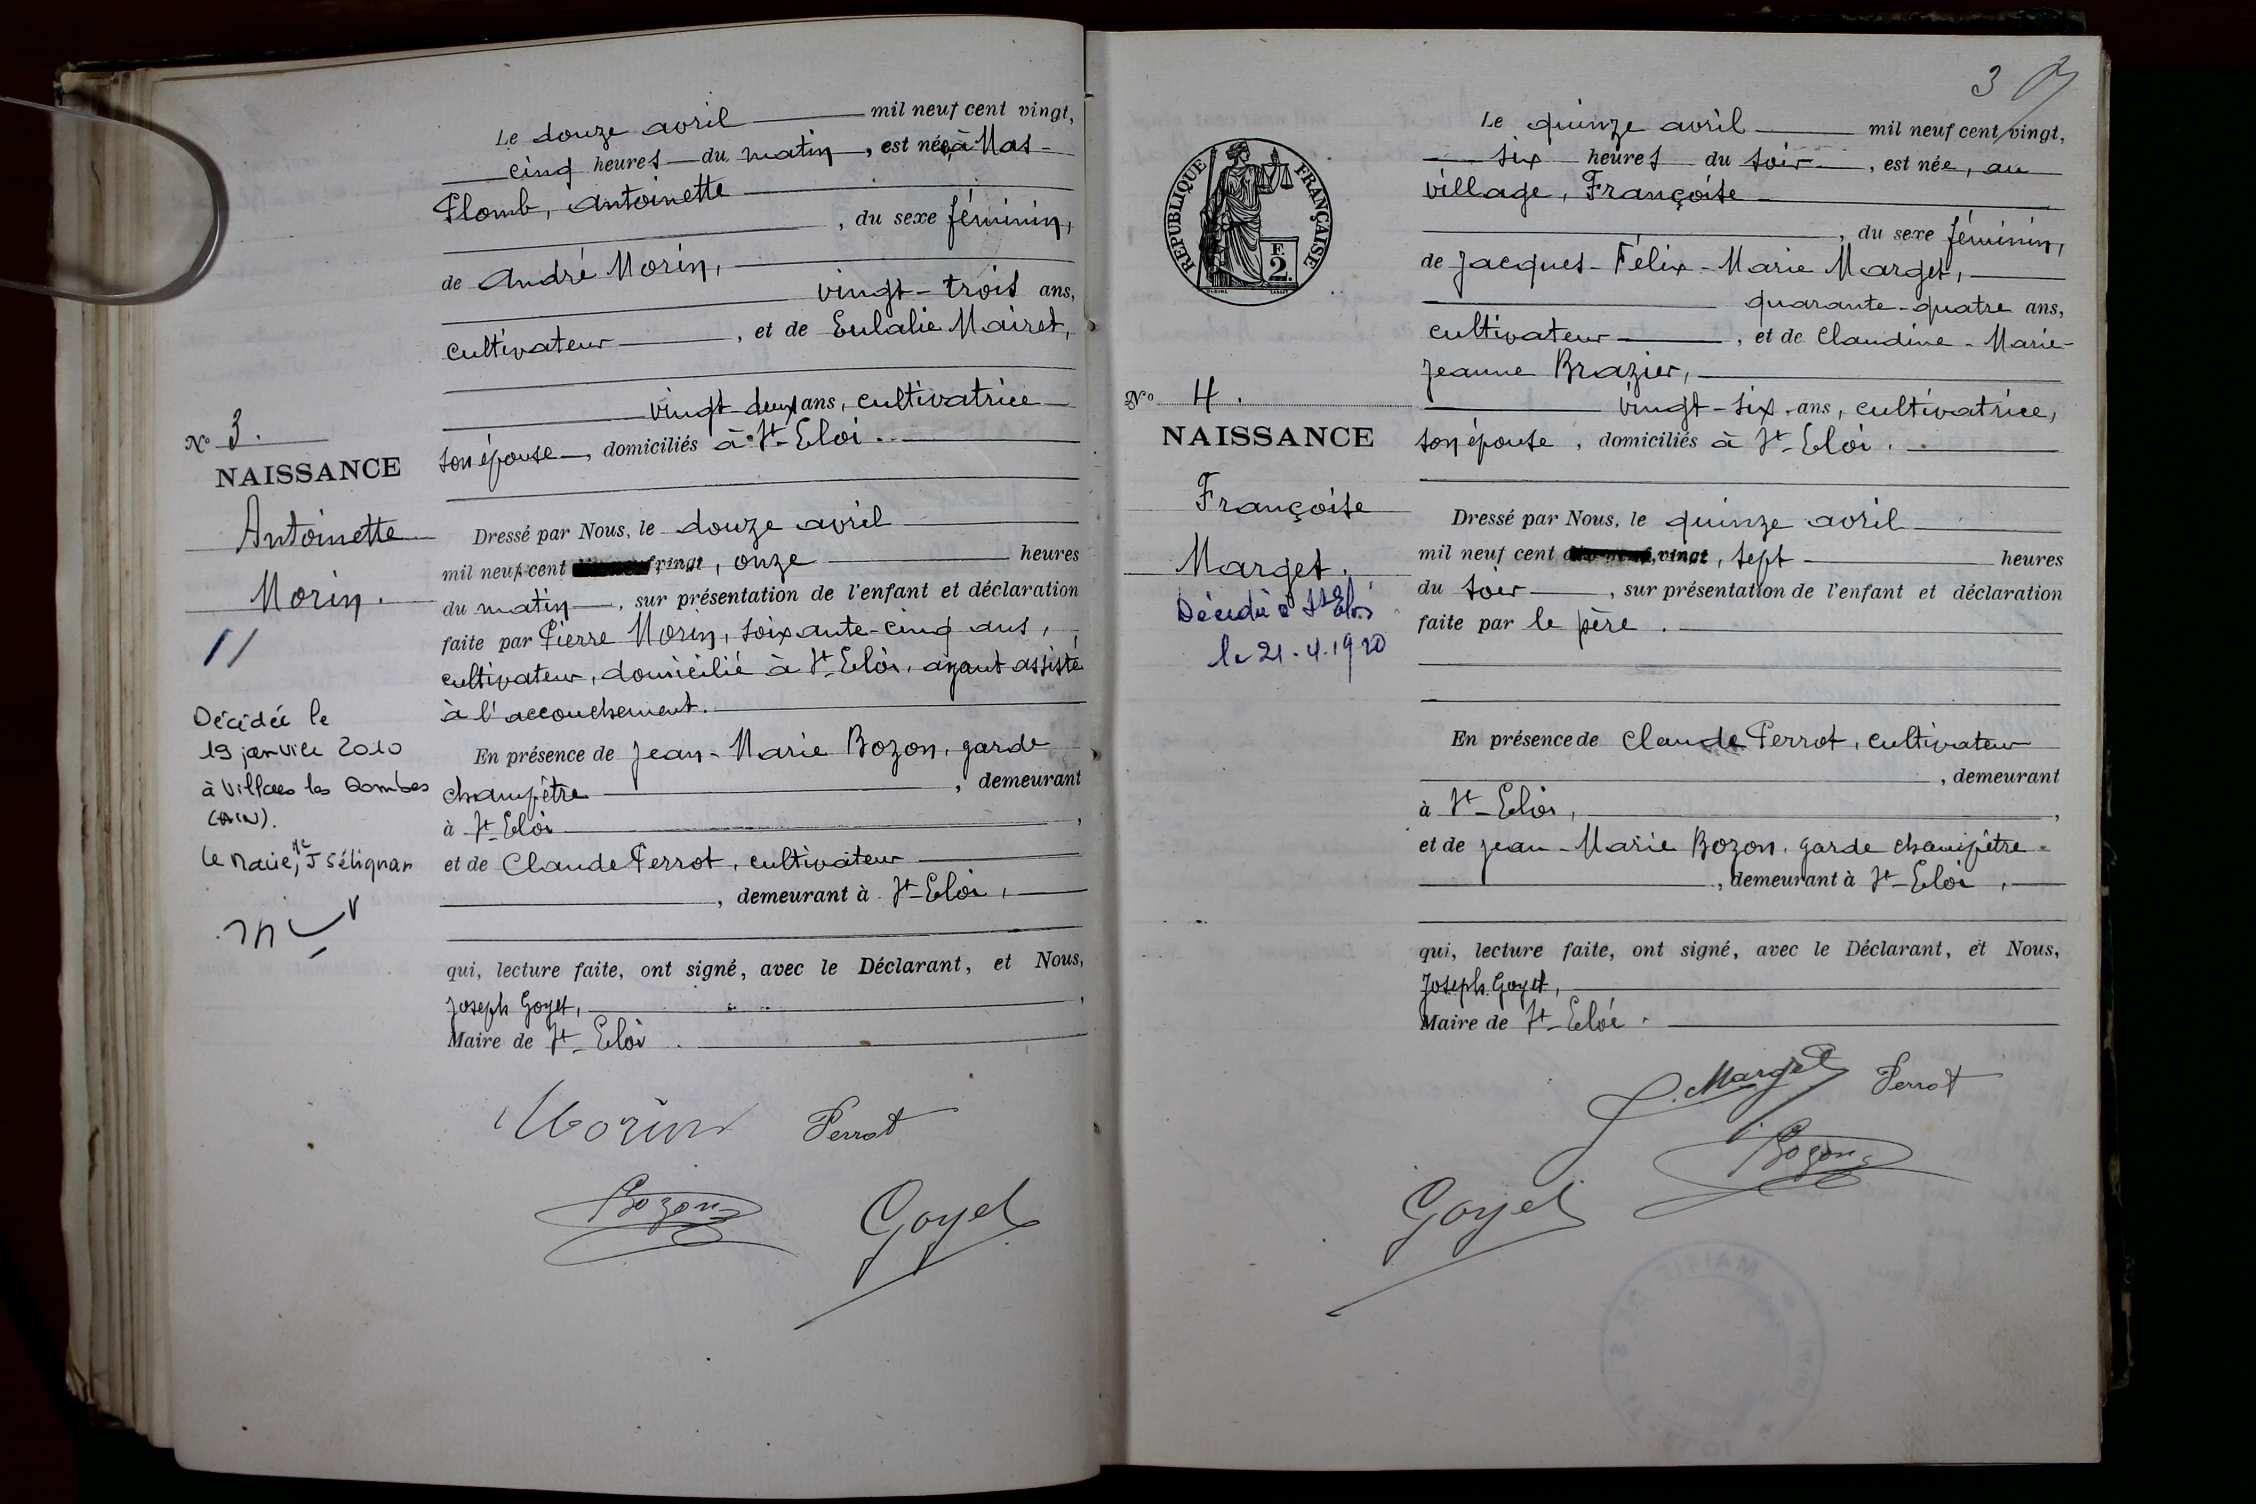 Le douze avril mil neuf cent vingt,
cinq heures du matin, est née, à Mas-
Plomb, Antoinette
, du sexe féminin,
de André Morin,
vingt-trois ans,
cultivateur, et de Eulalie Mairet,
vingt-deux ans, cultivatrice
son épouse, domiciliés à St-Eloi.
N° 3.
NAISSANCE
Antoinette
Morin.
Décédée le
19 janvier 2010
à Villars les Dombes
(AIN).
Le Maire,
Dressé par Nous, le douze avril
mil neuf cent vingt, onze heures
du matin, sur présentation de l'enfant et déclaration
faite par Pierre Morin, soixante-cinq ans,
cultivateur, domicilié à St-Eloi, ayant assisté
à l'accouchement.
En présence de Jean-Marie Bozon, garde
champêtre, demeurant
à St-Eloi,
et de Claude Perrot, cultivateur
, demeurant à St-Eloi,
qui, lecture faite, ont signé, avec le Déclarant, et Nous,
Joseph Goyet,
Maire de St-Eloi.
Morin Perrot
Bozon Goyet
3
Le quinze avril mil neuf cent vingt,
six heures du soir, est née, au
village, Françoise
, du sexe féminin,
de Jacques-Félix-Marie Marget,
quarante-quatre ans,
cultivateur, et de Claudine-Marie-
Jeanne Brazier,
vingt-six ans, cultivatrice,
son épouse, domiciliés à St-Eloi.
RÉPUBLIQUE FRANÇAISE
F.
2.
N° 4.
NAISSANCE
Françoise
Marget.
Décédée à St Eloi
le 21.4.1920
Dressé par Nous, le quinze avril
mil neuf cent vingt, sept heures
du soir, sur présentation de l'enfant et déclaration
faite par le père.
En présence de Claude Perrot, cultivateur
, demeurant
à St-Eloi,
et de Jean-Marie Bozon, garde champêtre
, demeurant à St-Eloi,
qui, lecture faite, ont signé, avec le Déclarant, et Nous,
Joseph Goyet,
Maire de St-Eloi.
J. Marget Perrot
Bozon
Goyet